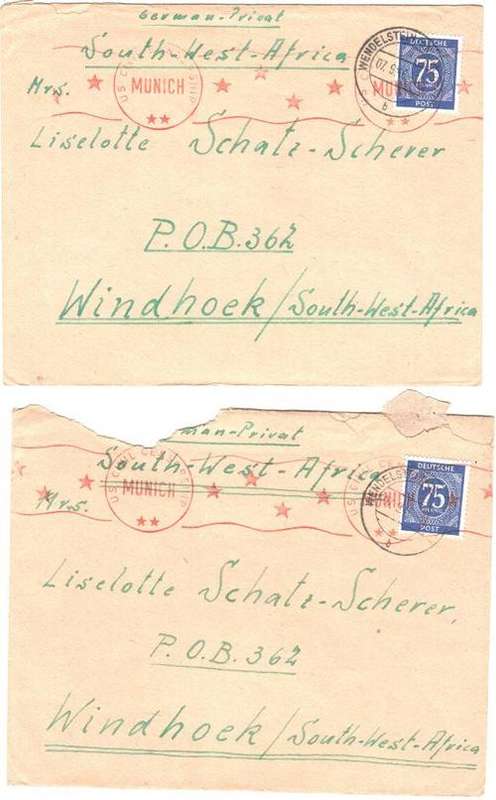 German-Privat
South-West-Africa
Mrs.
US CIVIL CENSORSHIP
MUNICH
MUNICH
WENDELSTEIN
b
DEUTSCHE
75
POST
Liselotte Schatz-Scherer
P.O.B. 362
Windhoek/South-West-Africa
man-Privat
South-West-Africa
Mrs.
US CIVIL CENSORSHIP
MUNICH
MUNICH
b
DEUTSCHE
75
PFENNIG
POST
Liselotte Schatz-Scherer,
P.O.B. 362
Windhoek/South-West-Africa